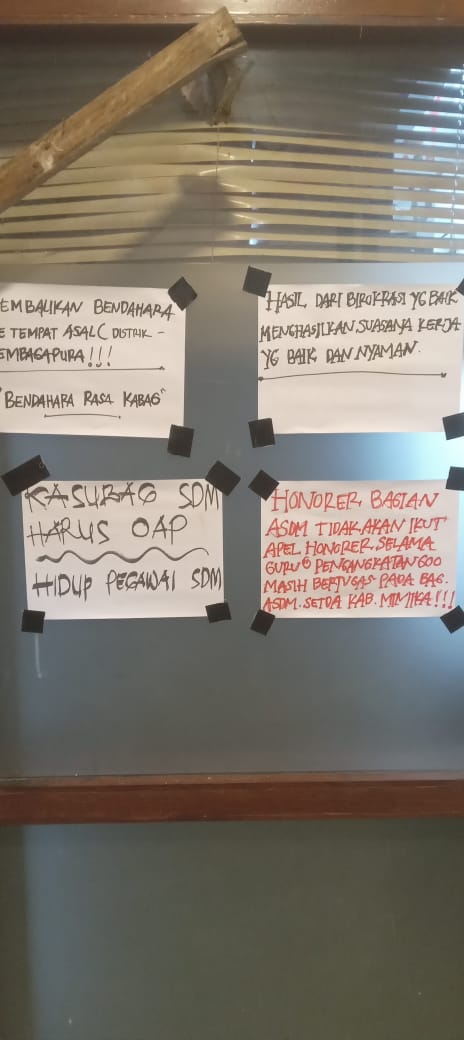 EMBALIKAN BENDAHARA
E TEMPAT ASAL ( DISTRIK -
EMBAGAPURA!!!
"BENDAHARA RASA KABAG"
HASIL DARI BIROKRASI YG BAIK
MENGHASILKAN SUASANA KERJA
YG BAIK DAN NYAMAN.
KASUBAG SDM
HARUS OAP
HIDUP PEGAWAI SDM
HONORER BAGIAN
ASDM TIDAK AKAN IKUT
APEL HONORER SELAMA
GURU² PENGANGKATAN 600
MASIH BERTUGAS PADA BAG.
ASDM. SETDA KAB. MIMIKA!!!